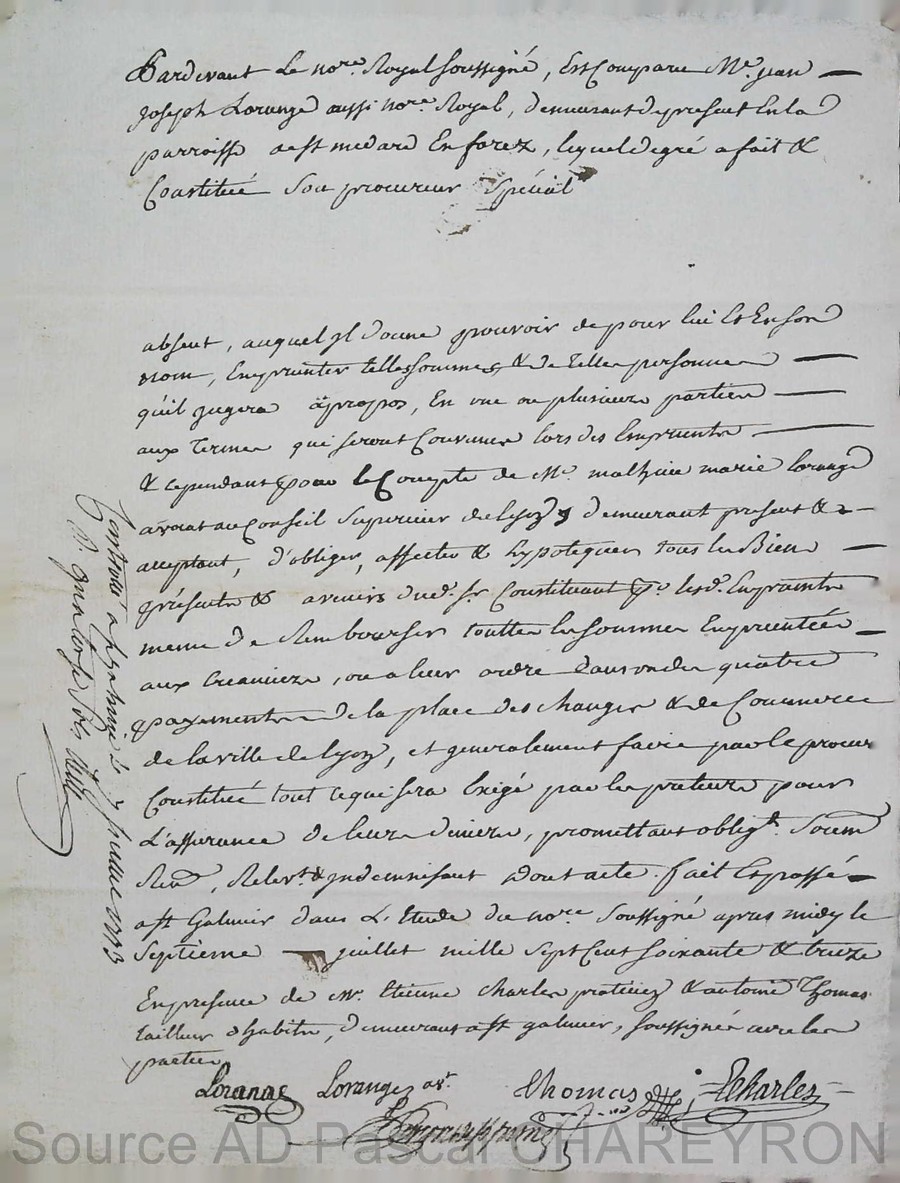 Pardevant Le no.re Royal soussigné, Est Comparu M.e jean
joseph Lorange aussi no.re Royal, demeurant de present En la
parroisse de st medard En forez, lequel de gré a fait &
Constitué Son procureur Spécial
absent, auquel jl donne pouvoir de pour lui Et En son
nom, Emprunter telles sommes & de telles personnes
qu'il jugera àpropos, En une ou plusieurs parties
aux termes qui seront Convenus lors des Emprunts
& cependant pour le Compte de M.e mathieu marie lorange
avocat au Conseil Superieur de lyon, demeurant present &
acceptant, d'obliger, affecter & hypotequer tous les Biens
présents & avenirs dud. sr. Constituant p.r lesd. Emprunts
meme de Rembourser touttes les sommes Empruntées
aux Creanciers, ou a leur ordre dans un des quatre
payements de la place des changes & de Commerce
de la ville de lyon, et generalement faire par le procur
Constitué tout ce qui sera Exigé par les preteurs pour
L'assurance de leurs deniers, promettant oblig.t Soum
Ren, Relev.t & jndemnisant dont acte. fait Et passé
a st Galmier dans L'Etude du no.re Soussigné apres midy le
Septieme juillet mille Sept Cent soixante & treize
En presence de M.r Etienne charles praticien & antoine Thomas
tailleur d'habits, demeurant a st galmier, soussignés avec les
parties
Lorange Lorange av.t Thomas Charles
Controlé a st galmier le 7 juillet 1773